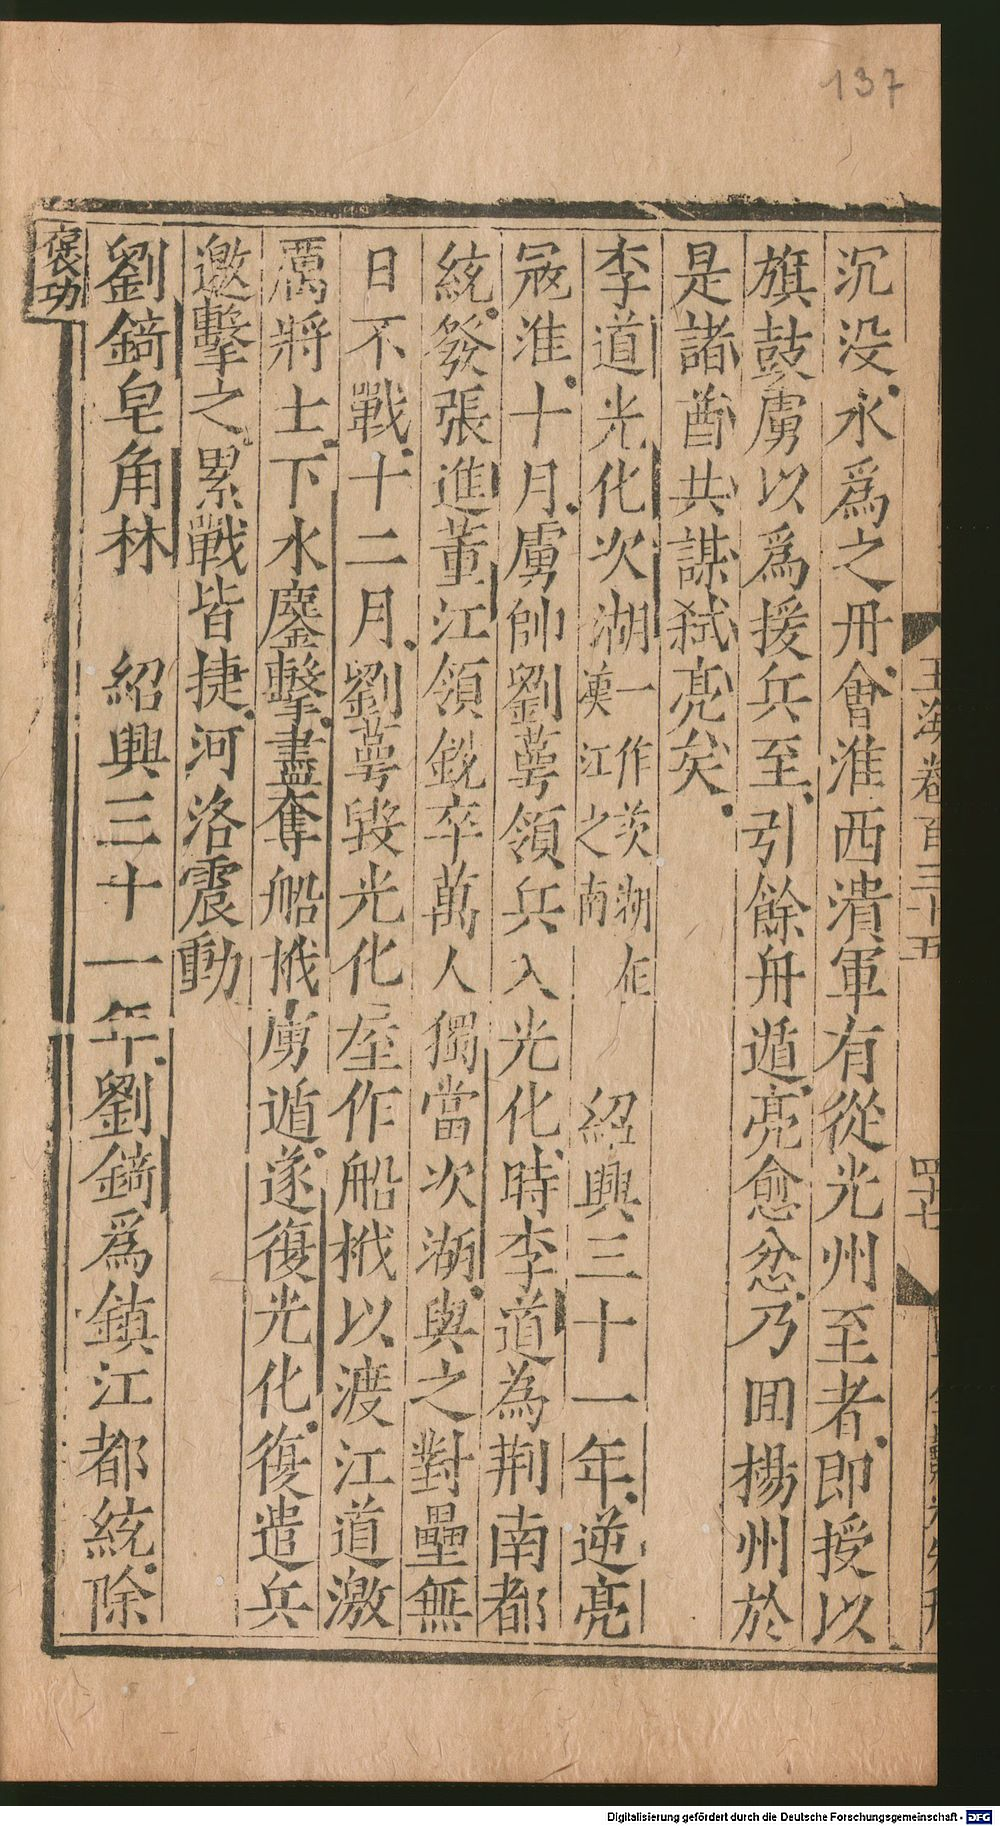 137
玉海卷百三十五
四十七
沉没永爲之冊會淮西潰軍有從光州至者即授以
旗鼓虜以爲援兵至引餘舟遁亮愈忿乃囬揚州於
是諸酋共謀弑亮矣
李道光化次湖一作茨湖在漢江之南 紹興三十一年逆亮
寇淮十月虜帥劉蕚領兵入光化時李道為荆南都
統發張進董江領銳卒萬人獨當次湖與之對壘無
日不戰十二月劉蕚毀光化屋作船栰以渡江道激
厲將士下水鏖擊盡奪船栰虜遁遂復光化復遣兵
邀擊之累戰皆捷河洛震動
劉錡皂角林 紹興三十一年劉錡爲鎮江都統除
褒功
Digitalisierung gefördert durch die Deutsche Forschungsgemeinschaft - DFG